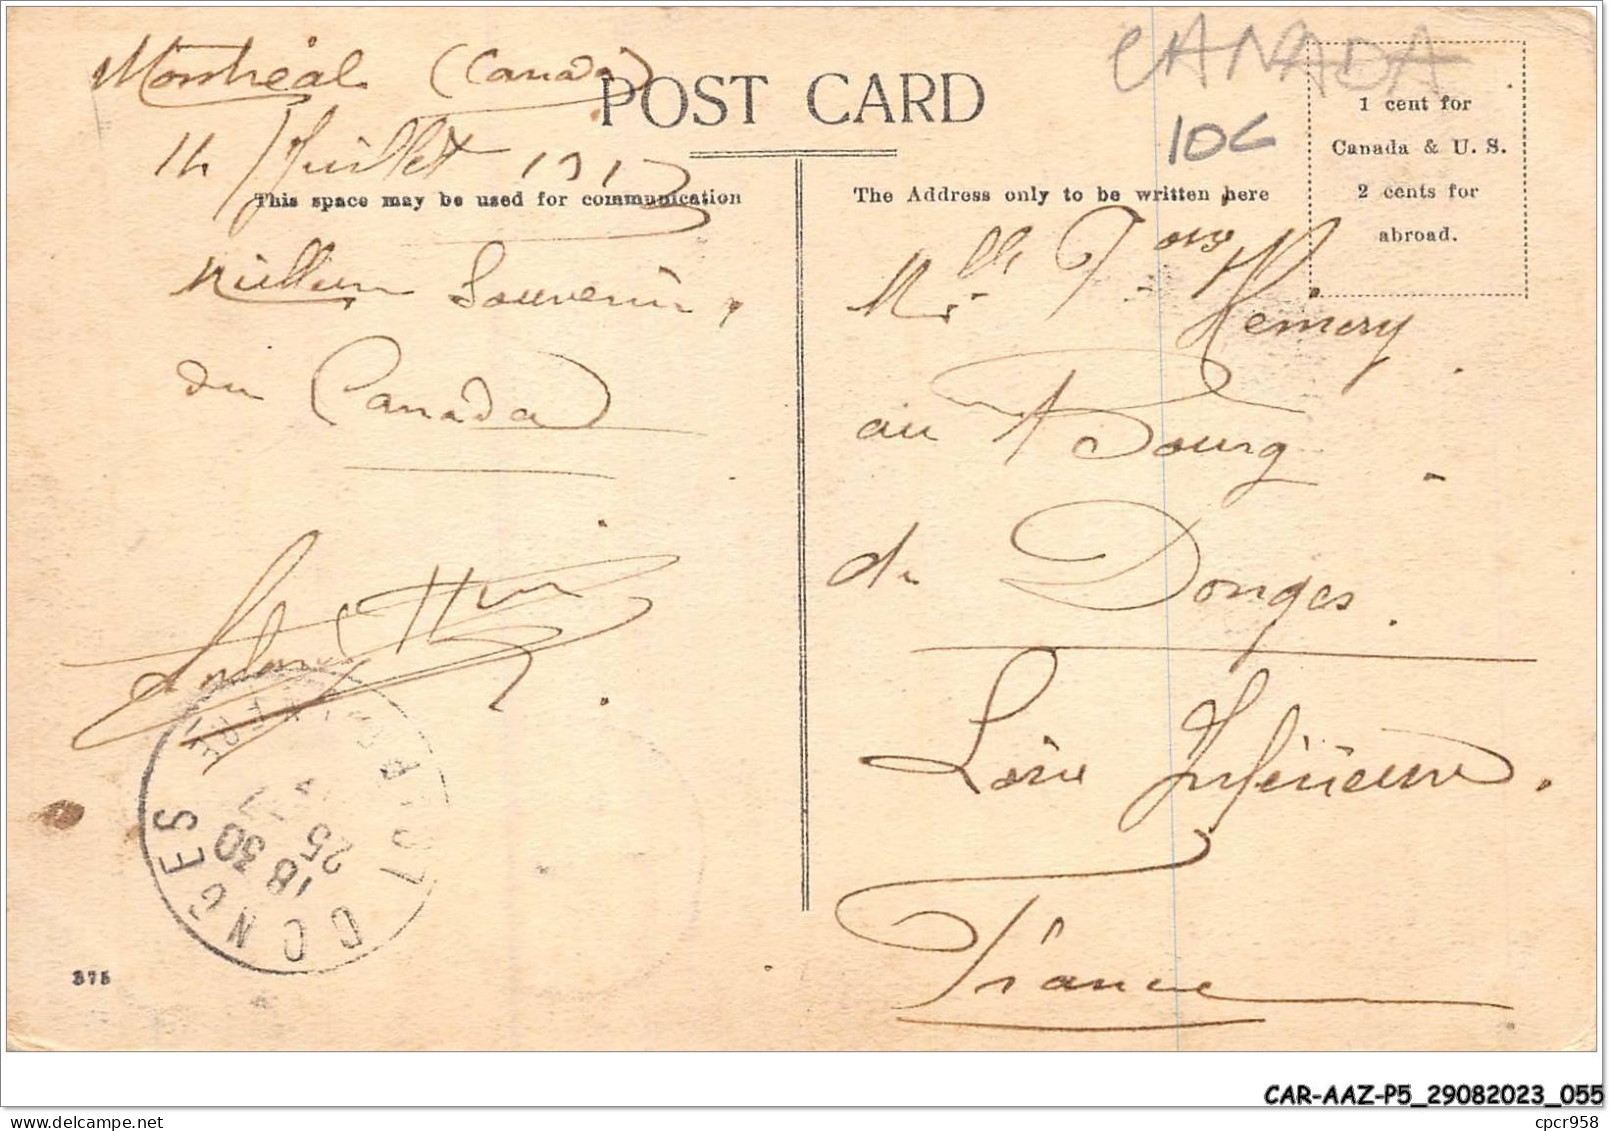 Montréal (Canada)
14 Juillet 1913
POST CARD
CANADA
10€
1 cent for
Canada & U. S.
2 cents for
abroad.
This space may be used for communication
The Address only to be written here
Meilleurs Souvenirs,
du Canada
Mlle Hemery
au Bourg
de Donges
Loire Inférieure.
France
DONGES LOIRE INFRE
18 30
25 -7
375
CAR-AAZ-P5_29082023_055
cpcr958